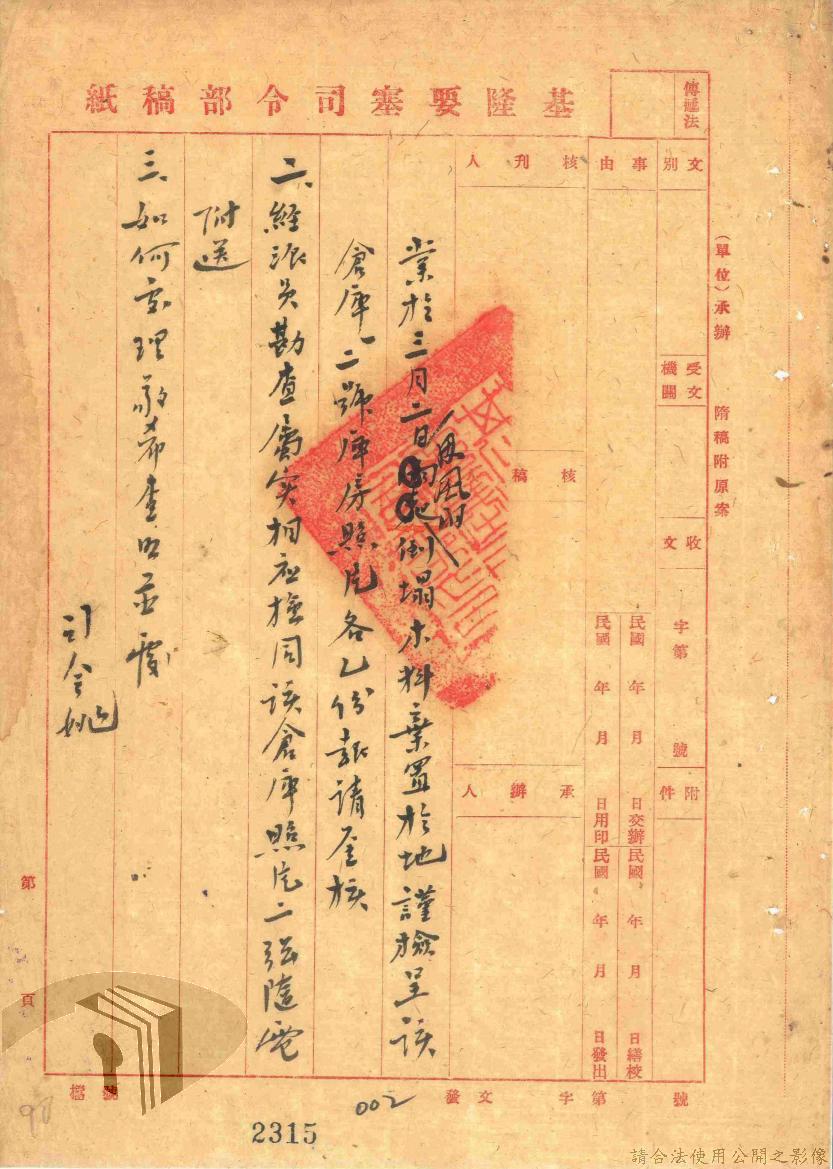 基隆要塞司令部稿紙
傳遞法
(單位)承辦
隋稿附原案
文別
受文機關
收文
字第
號
附件
事由
民國 年 月 日交辦
民國 年 月 日繕校
民國 年 月 日用印
民國 年 月 日發出
核判人
核稿
承辦人
業於三月二日夜風雨倒塌木料棄置於地謹檢呈該
倉庫一二號庫房照片各乙份報請鑒核
二、經派員勘查屬實相應檢同該倉庫照片二張隨電
附送
三、如何處理敬希查照並復
司令姚
第 頁
檔號
發文 字 第 號
002
2315
98
請合法使用公開之影像